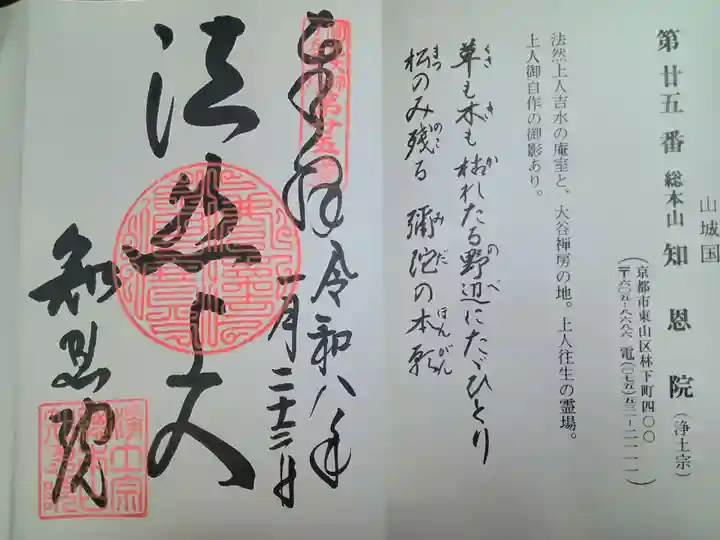 山城国
第廿五番 総本山 知恩院（浄土宗）
（京都市東山区林下町四〇〇
〒六〇五-八六八六 電（〇七五）五三一-二一一一）
法然上人吉水の庵室と、大谷禅房の地。上人往生の霊場。
上人御自作の御影あり。
草も木も枯れたる野辺にたゞひとり
くさ き か のべ
松のみ残る 彌陀の本願
まつ のこ みだ ほんがん
奉拝 令和八年
一月二十二日
第廿五
法然上人
知恩院
浄土宗